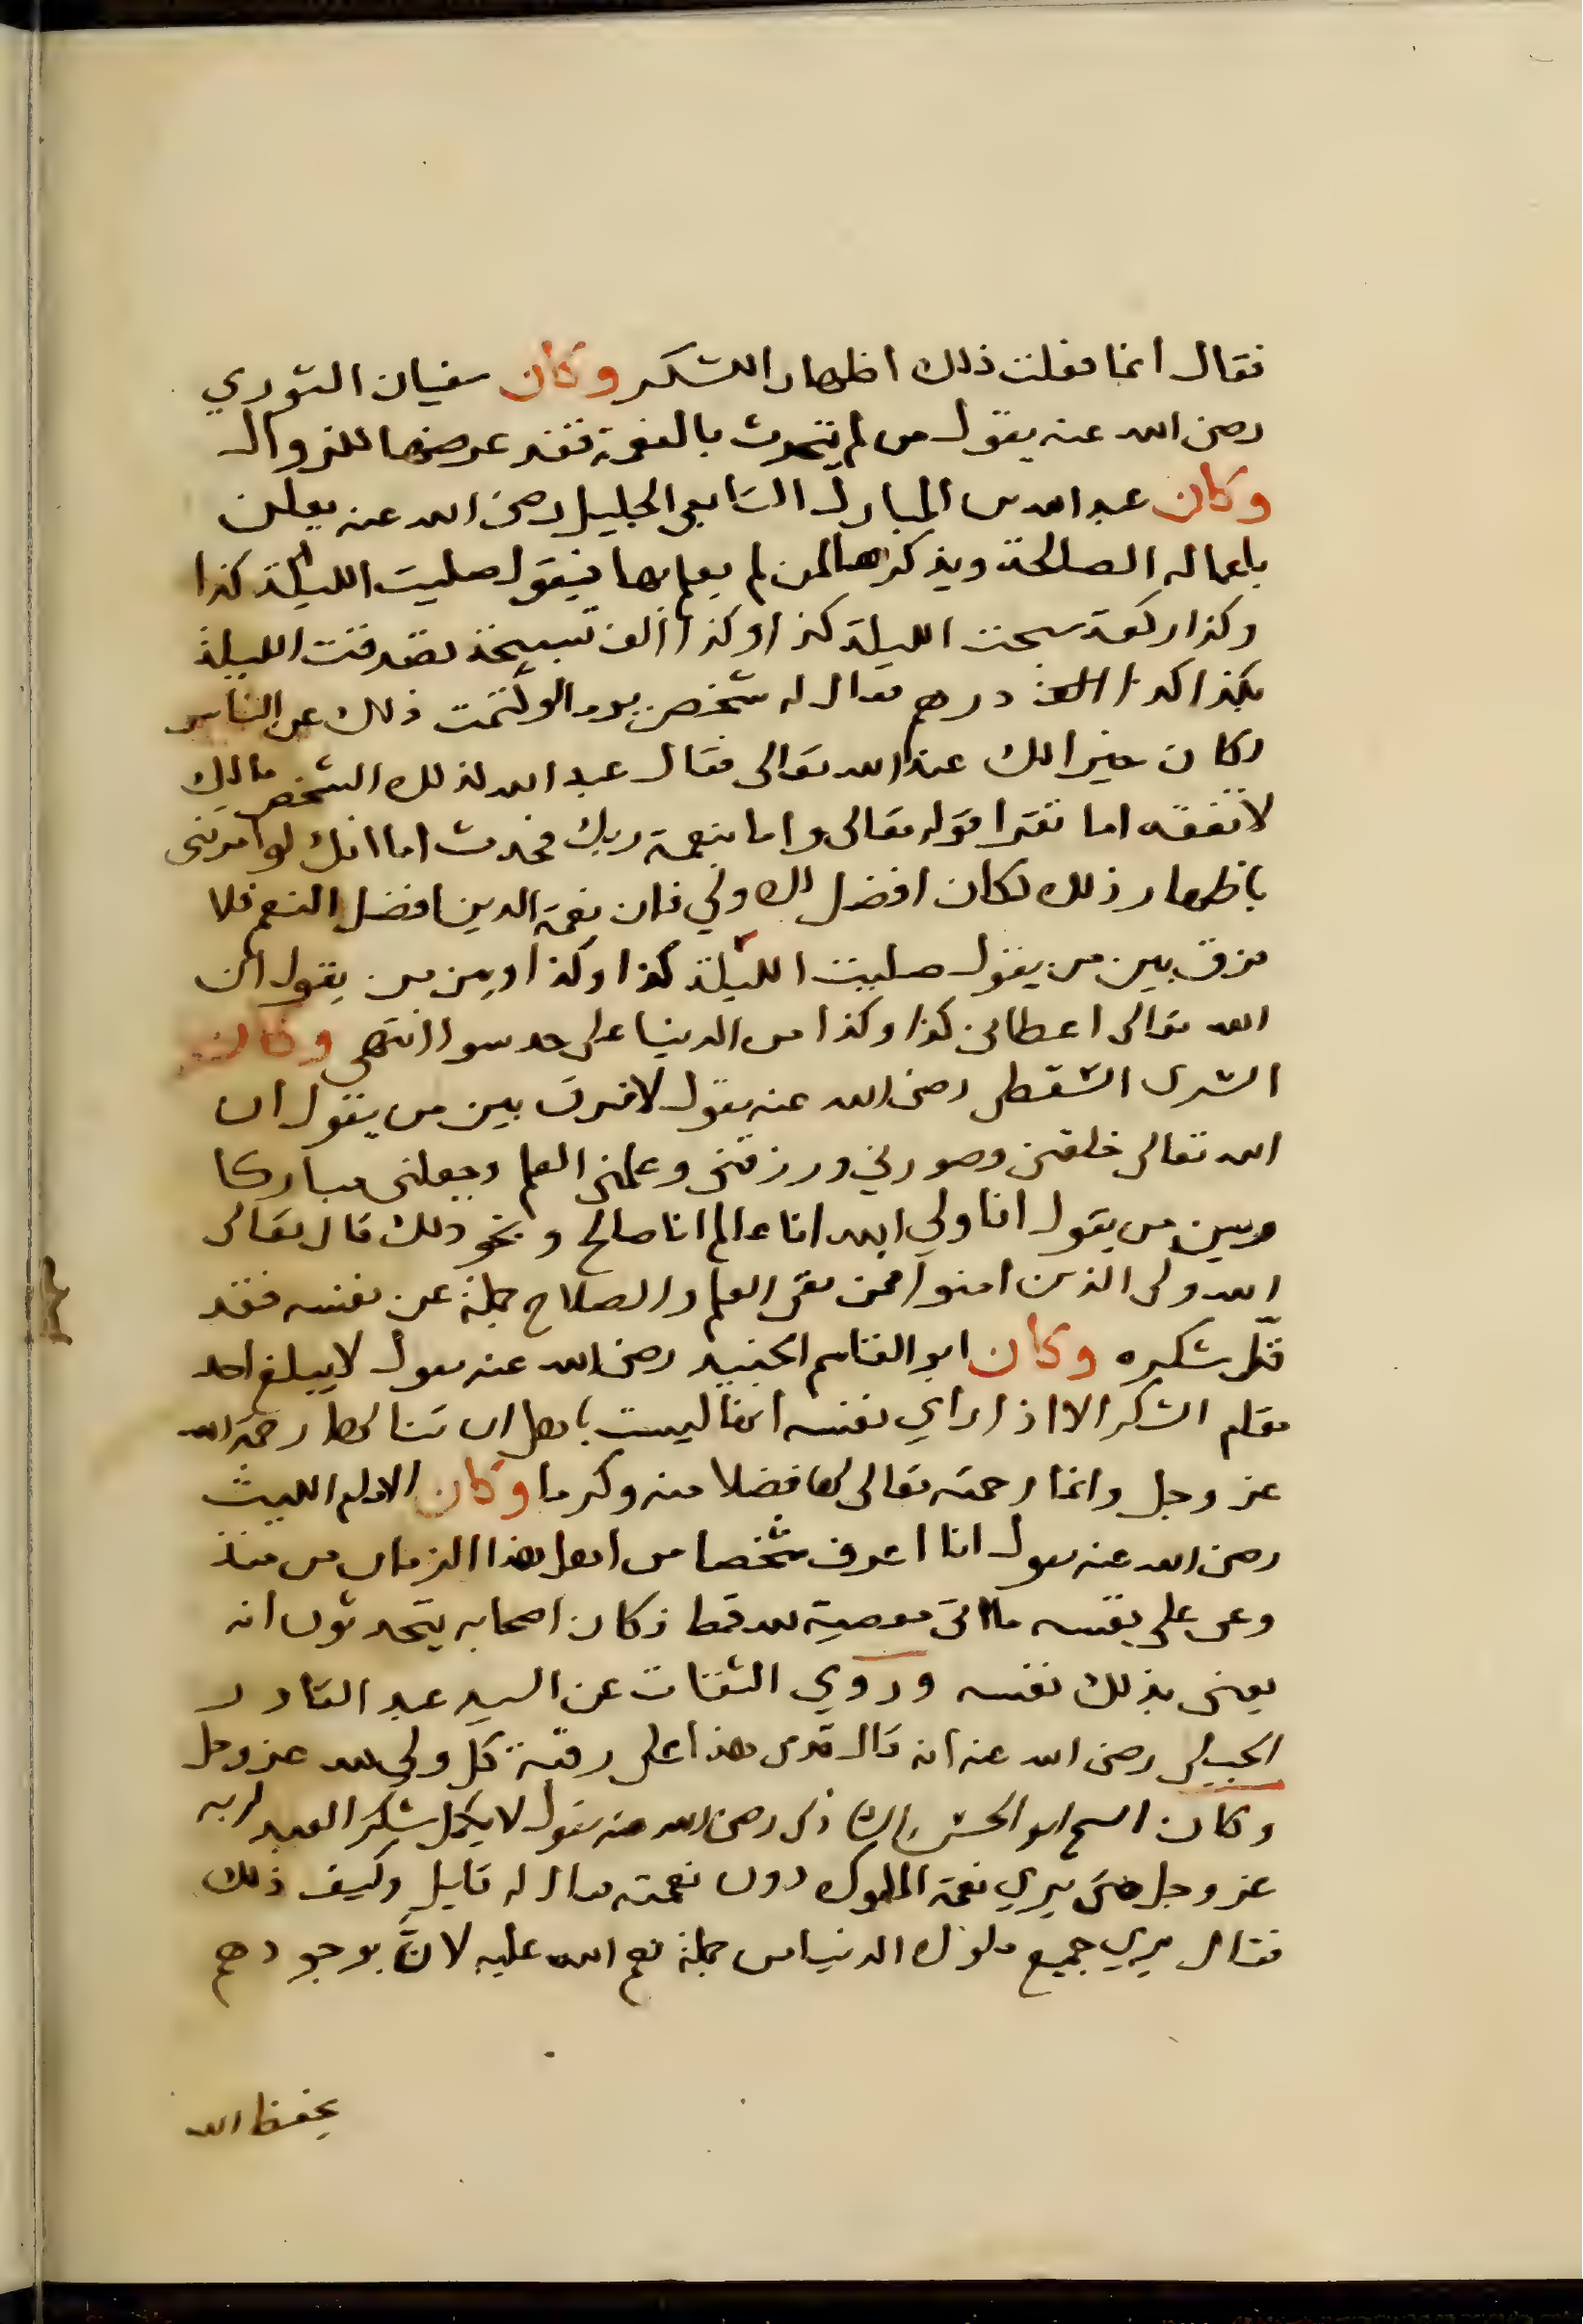 فقال انما فعلت ذلك اظهار الشكر وكان سفيان الثوري
رضى الله عنه يقول من لم يتحدث بالنعمة فقد عرضها للزوال
وكان عبد الله بن المبارك التابعى الجليل رضى الله عنه يعلن
باعماله الصالحة ويذكرها لمن لم يعلم بها فيقول صليت الليلة كذا
وكذا ركعة سبحت الليلة كذا وكذا الف تسبيحة تصدقت الليلة
بكذا كذا الف درهم فقال له شخص يوما لو كتمت ذلك عن الناس
لكان خيرا لك عند الله تعالى فقال عبد الله لذلك الشخص مالك
لا تفقه اما تقرا قوله تعالى واما بنعمة ربك فحدث اما انك لو امرتنى
باظهار ذلك لكان افضل لك ولي فان نعمة الدين افضل النعم فلا
فرق بين من يقول صليت الليلة كذا وكذا وبين من يقول ان
الله تعالى اعطانى كذا وكذا من الدنيا على حد سوا انتهى وكان
السرى السقطى رضى الله عنه يقول لا فرق بين من يقول ان
الله تعالى خلقنى وصورني ورزقنى وعلمنى العلم وجعلنى مباركا
وبين من يقول انا ولي الله انا عالم انا صالح ونحو ذلك قال تعالى
الله ولى الذين امنوا فمن نفى العلم والصلاح جملة عن نفسه فقد
قلّ شكره وكان ابو القاسم الجنيد رضى الله عنه يقول لا يبلغ احد
مقام الشكر الا اذا راي نفسه انها ليست باهل ان تنالها رحمة الله
عز وجل وانما رحمته تعالى لها فضلا منه وكرما وكان الامام الليث
رضى الله عنه يقول انا اعرف شخصا من اهل هذا الزمان من منذ
وعى على نفسه ما اتى معصية لله قط فكان اصحابه يتحدثون انه
يعنى بذلك نفسه وروي الثقات عن السيد عبد القادر
الجيلى رضى الله عنه انه قال قدمى هذا على رقبة كل ولى لله عز وجل
وكان الشيخ ابو الحسن الشاذلى رضى الله عنه يقول لا يكمل شكر العبد لربه
عز وجل حتى يري نعمة الملوك دون نعمته فقال له قايل وكيف ذلك
فقال يري جميع ملوك الدنيا من جملة نعم الله عليه لانَّ بوجودهم
يحفظ الله